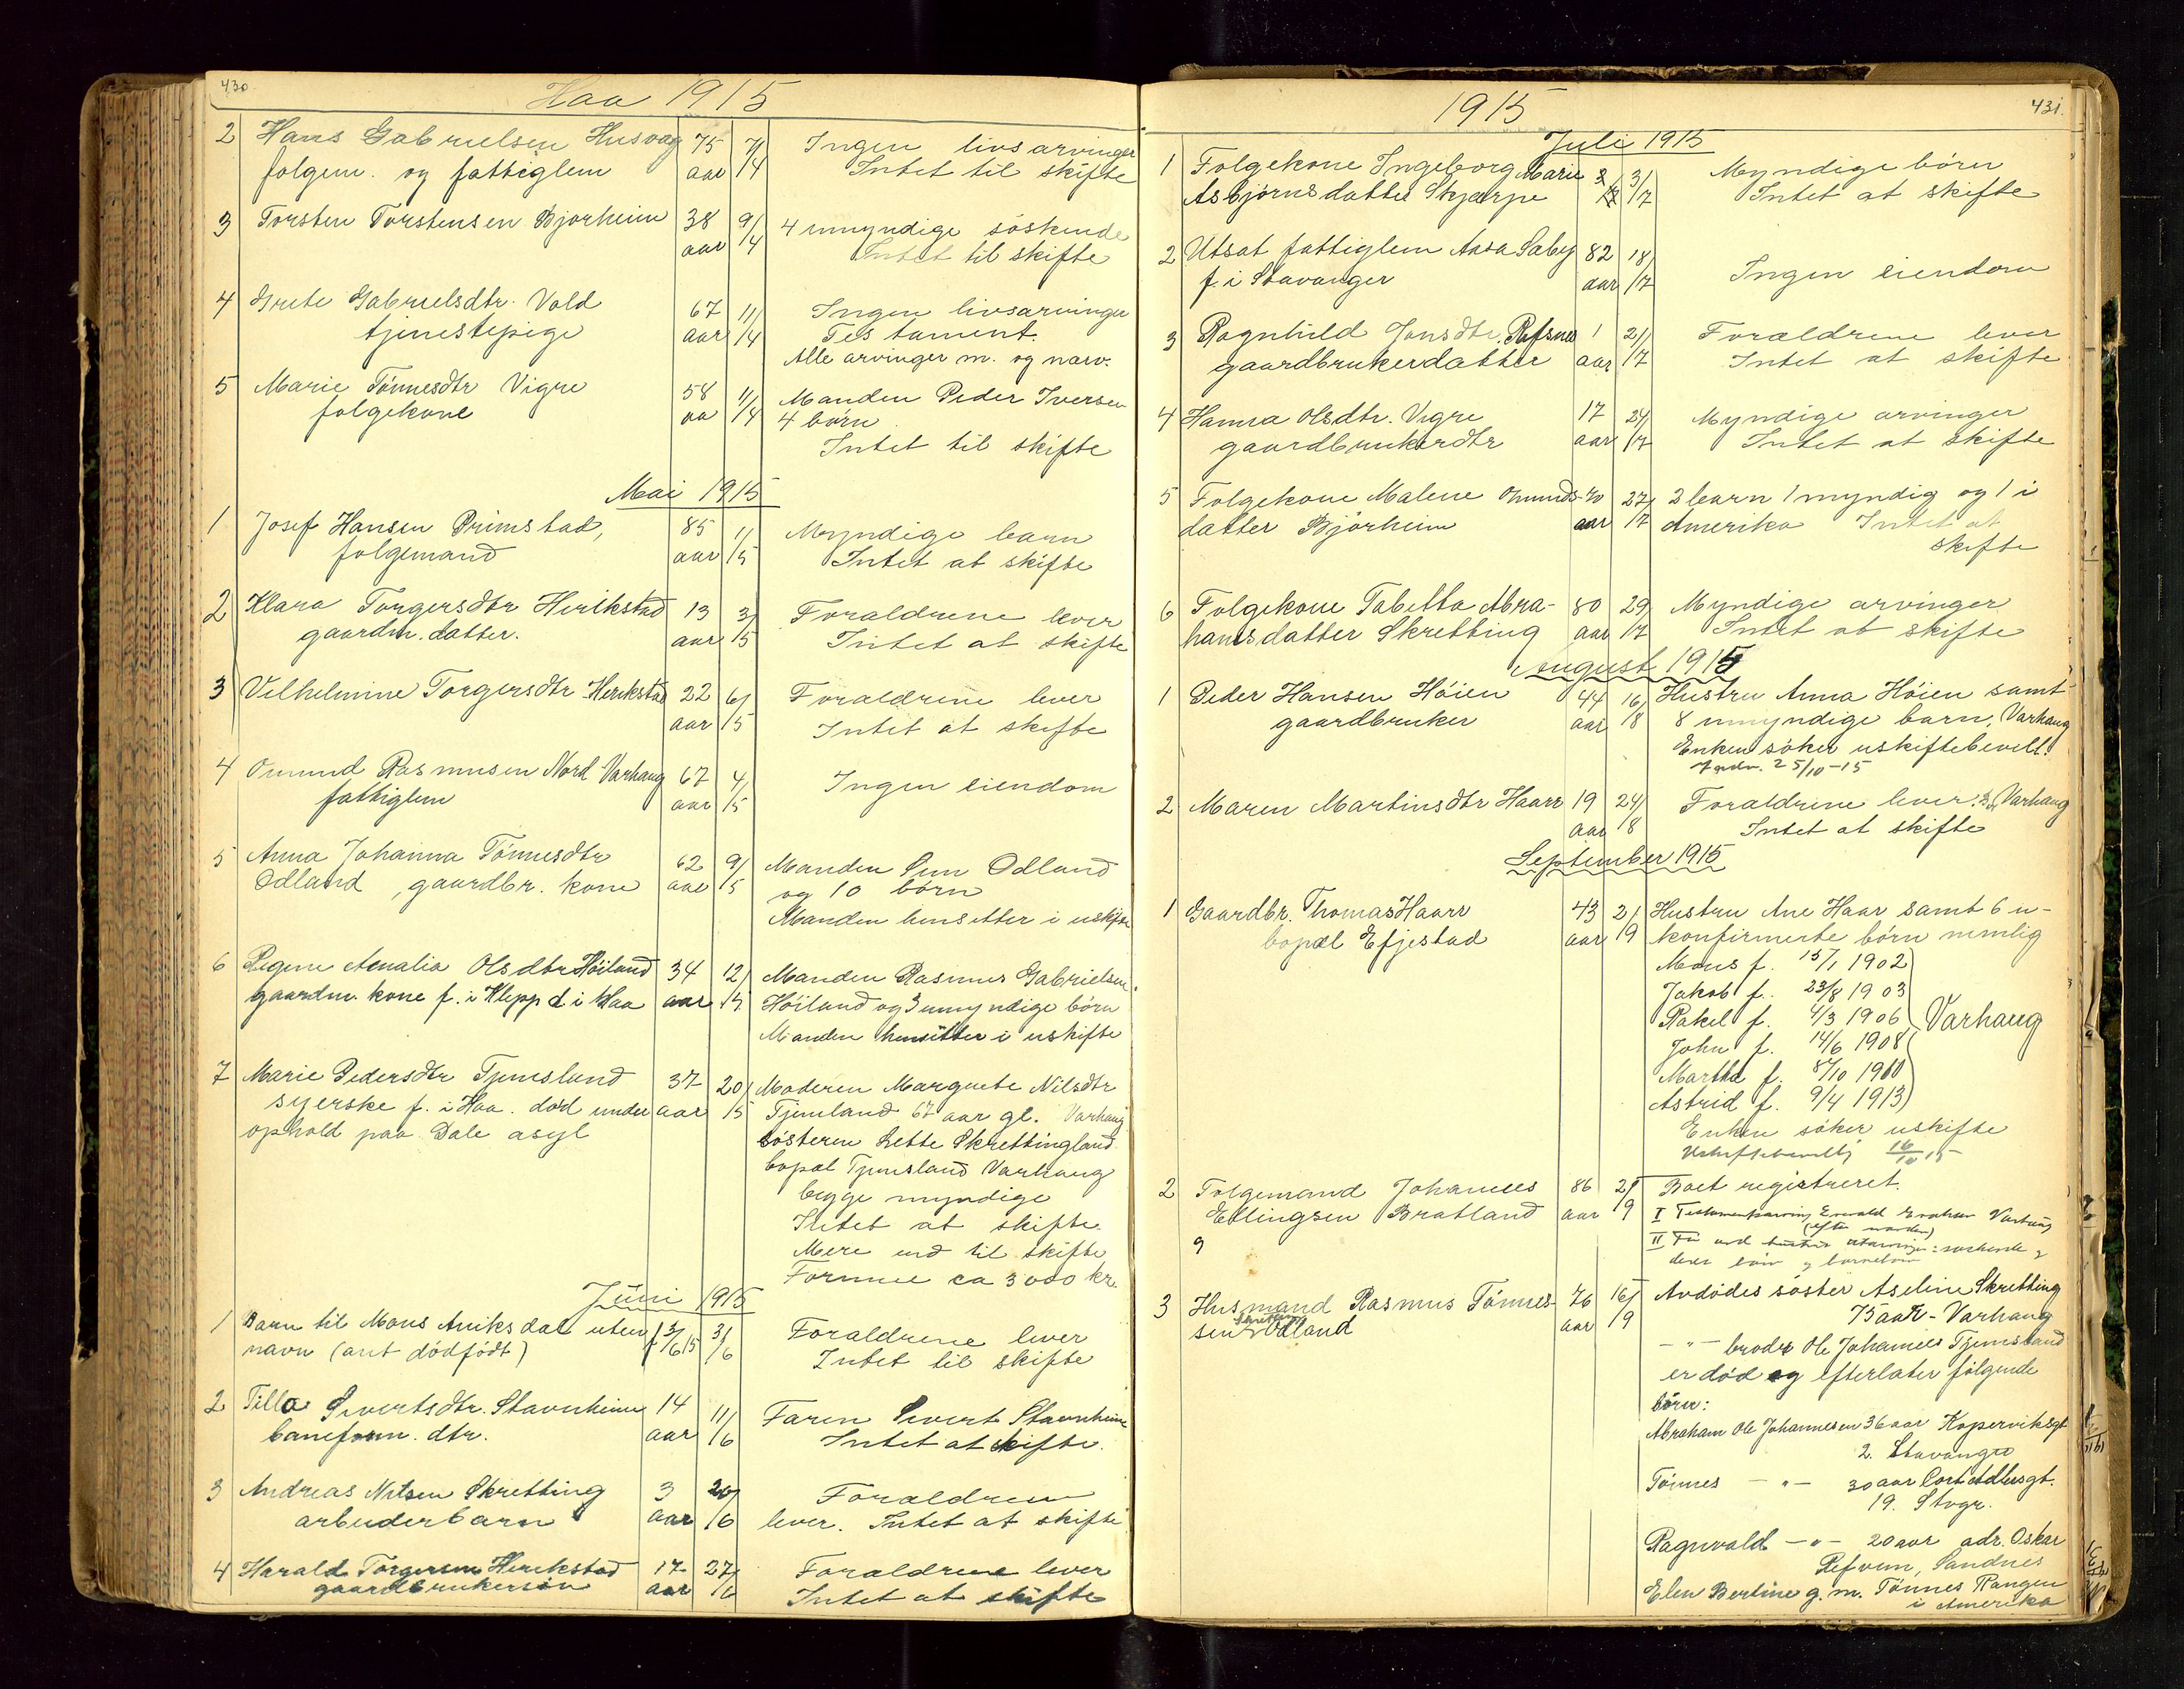 430
Haa 1915
2 Hans Gabrielsen Husvæg 75 7/ Ingen livsarvinger
folgem. og fattiglem aar /4 Intet til skifte
3 Torsten Torstensen Bjorheim 38 9/ 4 umyndige söskende
aar /4 Intet til skifte
4 Grete Gabrielsdtr. Vold 67 11/ Ingen livsarvinger
tjenestepige aar /4 Testament.
Alle arvinger m. og narv.
5 Marie Tönnesdtr Vigre 58 11/ Manden Peder Iversen
folgekone aa /4 4 börn
Intet til skifte
Mai 1915
1 Josef Hansen Primstad, 85 1/ Myndige barn
folgemand aar /5 Intet at skifte
2 Klara Torgersdtr Herikstad 13 3/ Foraldrene lever
gaardm. datter. aar /5 Intet at skifte
3 Vilhelmine Torgersdtr Herikstad 22 6/ Foraldrene lever
aar /5 Intet at skifte
4 Omund Rasmusen Nord Varhaug 67 4/ Ingen eiendom
fattiglem aar /5
5 Anna Johanna Tönnesdtr 62 9/ Manden Odland
Odland, gaardbr. kone aar /5 og 10 börn
Manden hensitter i uskifte
6 Regine Amalia Olsdtr Höiland 34 12/ Manden Rasmus Gabrielsen
gaardm. kone f. i Klepp d i Haa aar /5 Höiland og 3 umyndige börn
Manden hensitter i uskifte
7 Marie Pedersdtr Tjemsland 37 20/ Moderen Margrete Nilsdtr
syerske f. i Haa. död under aar /5 Tjemland 67 aar gl. Varhaug
ophold paa Dale asyl sösteren Lette Skrettingland
bopæl Tjemsland Varhaug
begge myndige
Intet at skifte.
Mere end til skifte
Formue ca 3000 kr.
Juni 1915
1 Barn til Mons Aniksdal uten f 3/6 15 3/ Foraldrene lever
navn (ant dödfödt) /6 Intet til skifte
2 Tilla Sivertsdtr. Stavnheim 14 11/ Faren Sivert Stavnheim
baneform. dtr. aar /6 Intet at skifte.
3 Andreas Nilsen Skretting 3 20/ Foraldrene
arbeiderbarn aar /6 lever. Intet at skifte
4 Harald Torgersen Herikstad 17 27/ Foraldrene lever
gaardbrukersön aar /6 Intet at skifte
1915
431.
Juli 1915
1 Folgekone Ingeborg Marie 3/ Myndige börn
Asbjörnsdatter Skjærpe /7 Intet at skifte
2 Utsat fattiglem Aasa Saby 82 18/ Ingen eiendom
f. i Stavanger aar /7
3 Ragnhild Jonsdtr. Refsnes 1 21/ Foraldrene lever
gaardbrukerdatter aar /7 Intet at skifte
4 Hanna Olsdtr. Vigre 17 24/ Myndige arvinger
gaardbrukerdtr aar /7 Intet at skifte
5 Folgekone Malene Omunds- 70 27/ 2 barn 1 myndig og 1 i
datter Bjorheim aar /7 Amerika Intet at
skifte
6 Folgekone Tabitta Abra- 80 29/ Myndige arvinger
hamsdatter Skretting aar /7 Intet at skifte
August 1915
1 Peder Hansen Höien 44 16/ Hustru Anna Höien samt
gaardbruker aar /8 8 umyndige barn, Varhaug
Enken söker uskiftebevill.
25/10-15
2 Maren Martinsdtr Haarr 19 24/ Foraldrene lever. Varhaug
aar /8 Intet at skifte
September 1915
1 Gaardbr. Thomas Haarr 43 2/ Hustru Ane Haar samt 6 u-
bopæl Efjestad aar /9 konfirmerte börn nemlig
Mons f. 15/1 1902
Jakob f. 23/8 1903
Rakel f. 4/3 1906
Varhaug
John f. 14/6 1908
Martha f. 8/10 1910
Astrid f. 9/4 1913
Enken söker uskifte
Uskiftebevillg 16/10 15
2 Folgemand Johannes 86 2/ Boet registreret.
Ellingsen Bratland aar /9 I Testamentsarving Varhaug
II
deres börn og barnebörn
9
3 Husmand Rasmus Tönnes- 76 16/ Avdödes söster Aseline Skretting
sen Odland aar /9 75 aar - Varhaug
Skretting
— " — broder Ole Johannes Tjemsland
er död og efterlater fölgende
börn:
Abraham Ole Johannesen 36 aar Kopervikgt
2. Stavanger
Tönnes — " — 30 aar
19. Stvgr.
Ragnvald — " — 20 aar adr. Oskar
Refvem, Sandnes
Elen Bertine g. m. Tönnes Rangen
i Amerika